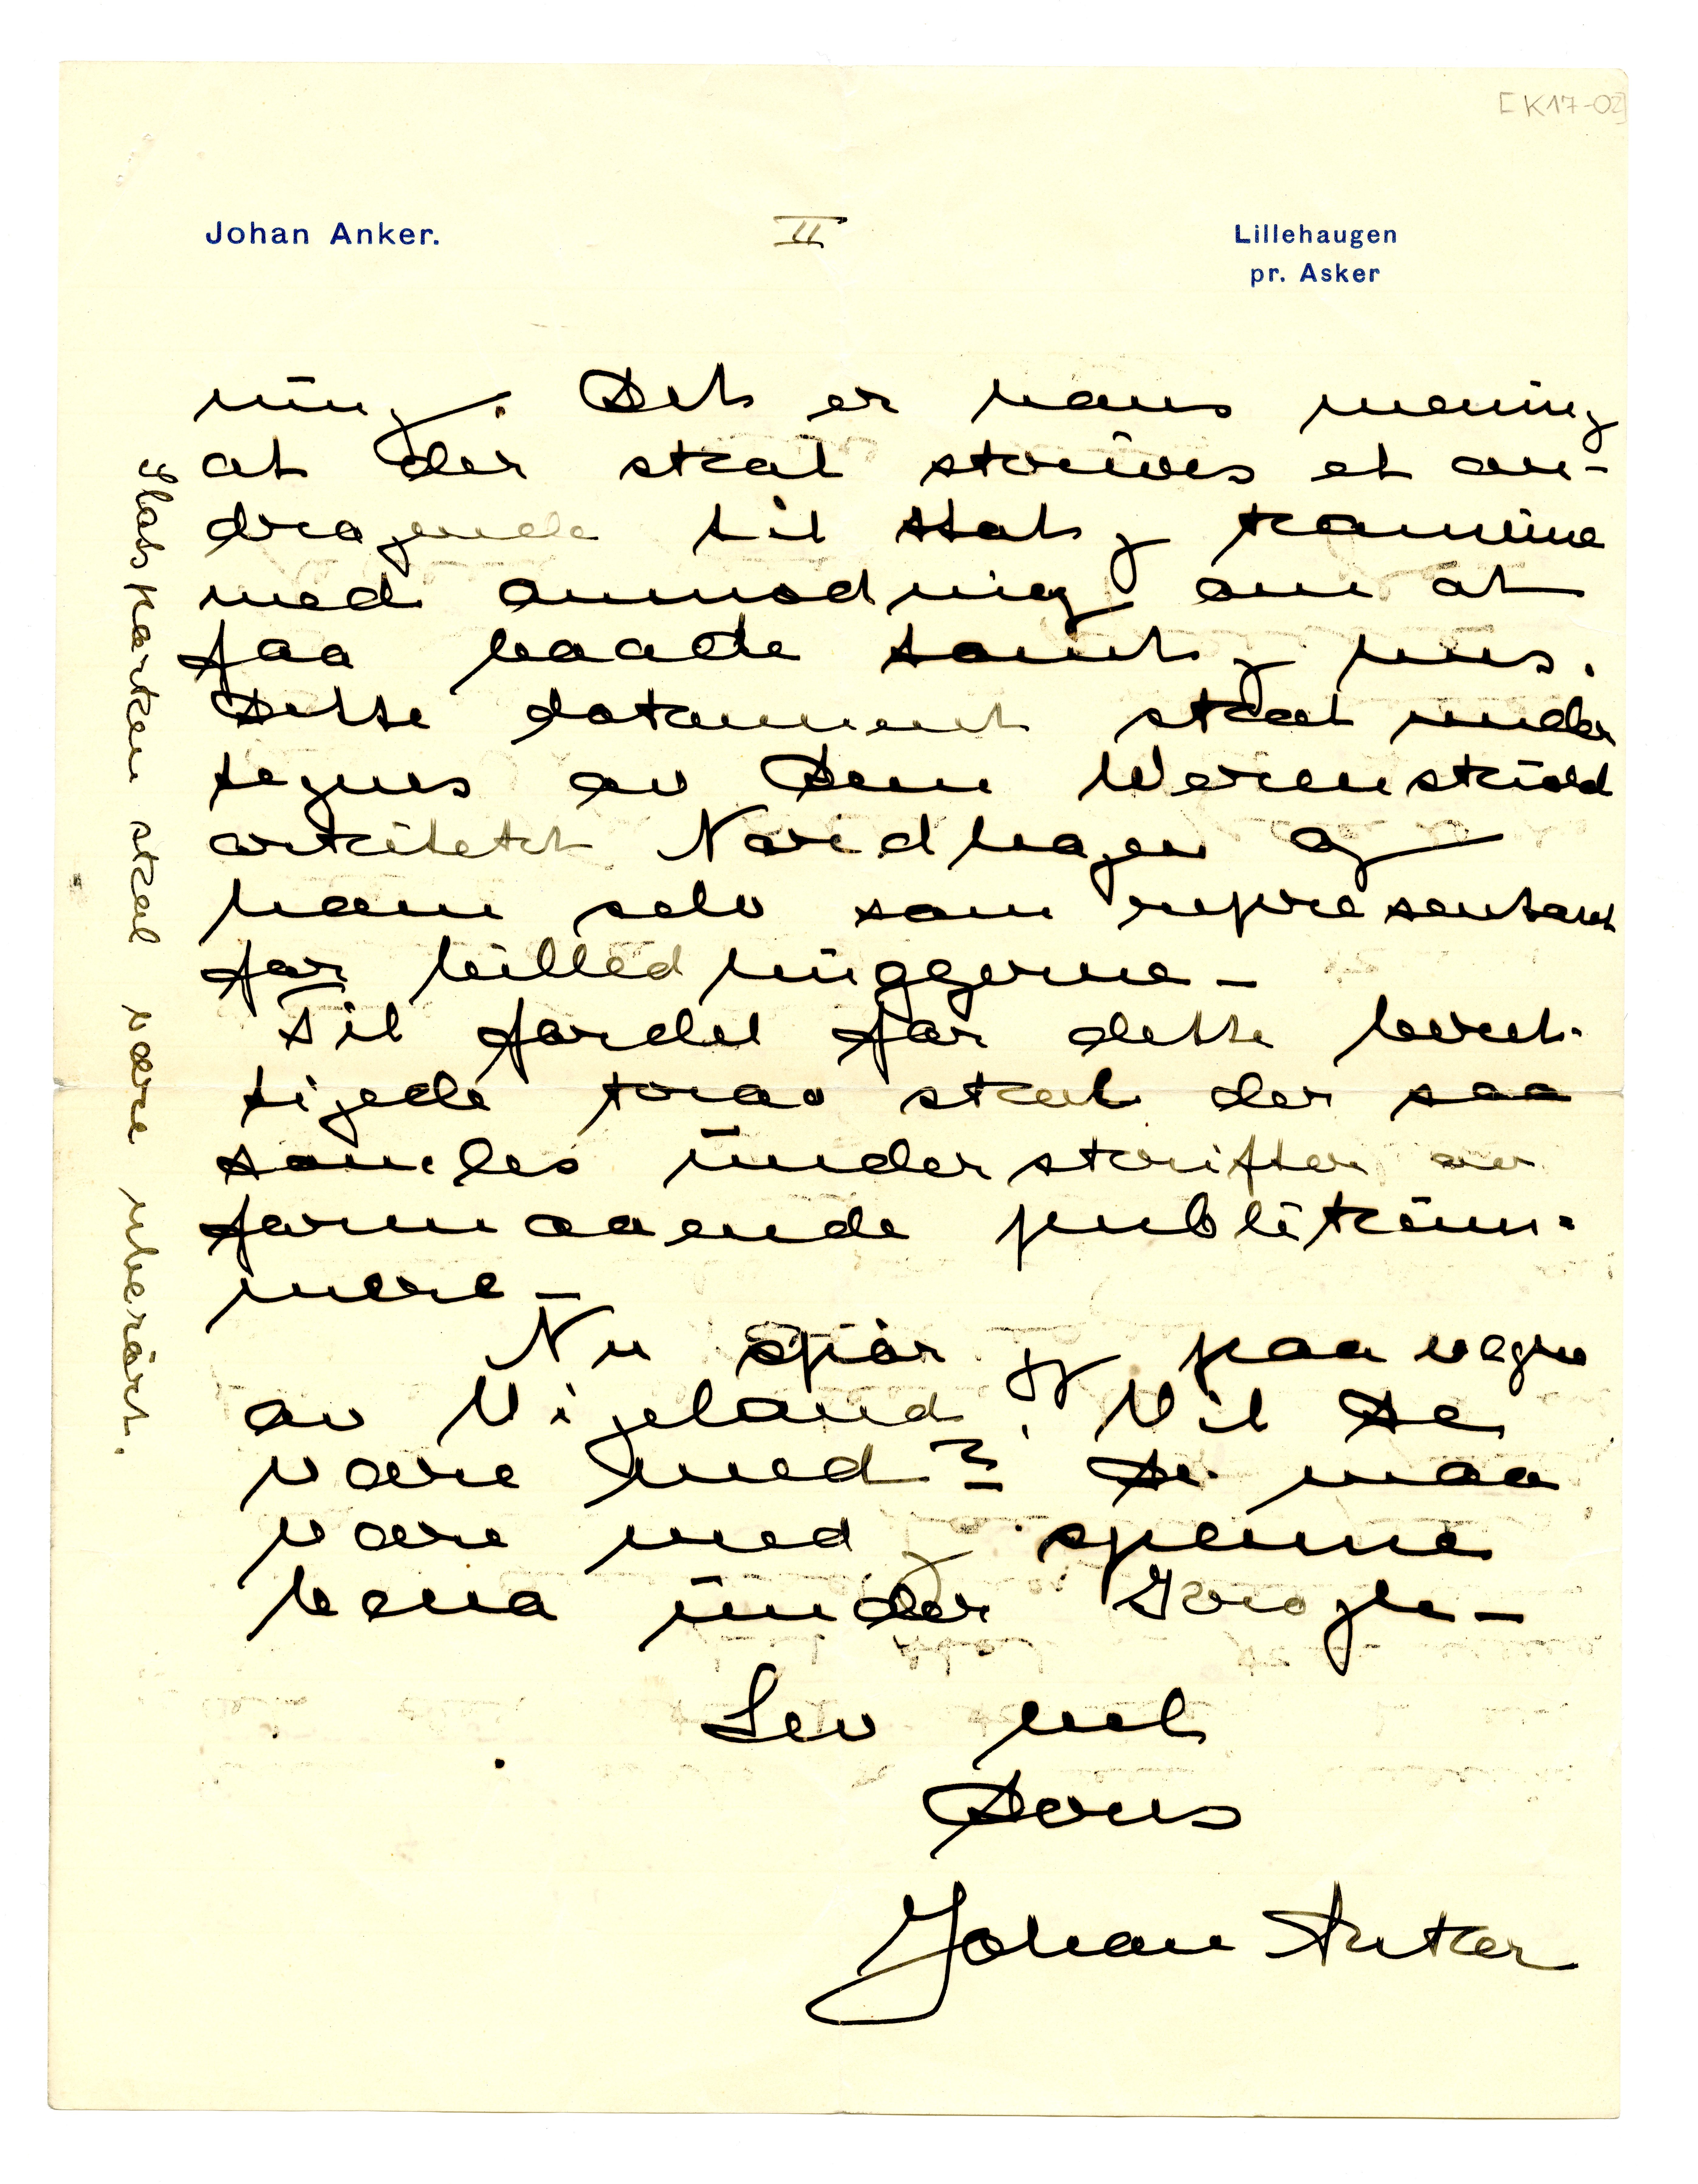 [K17-02]
Johan Anker.
II
Lillehaugen
pr. Asker
ning. Det er hans mening
at der skal skrives et an-
dragende til stat og kommune
med anmodning om at
faa baade tomt og hus.
Dette dokument skal under
tegnes av Dem Werenskiold
arkitekt Nordhagen og
ham selv som representant
for billedhuggerne -
Til fordel for dette beret-
tigede krav skal der saa
samles underskrifter av
formaaende publikum-
mere -
Nu spør jeg paa vegne
av Vigeland: Vil De
være med? De maa
være med og spenne
bena under Grogh -
Lev vel
Deres
Johan Anker
Slotsparken skal være uberört.